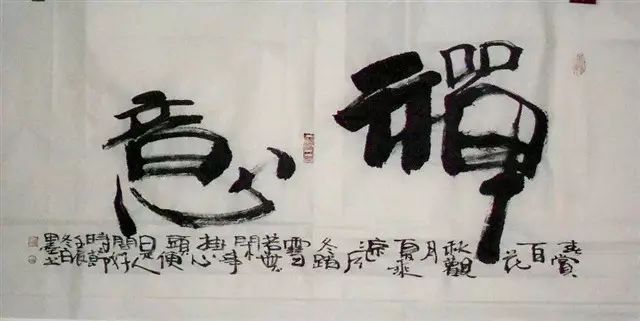 禪意
春賞百花秋觀月夏乘涼风冬踏雪若無閑事挂心頭便是人間好時節
冬日